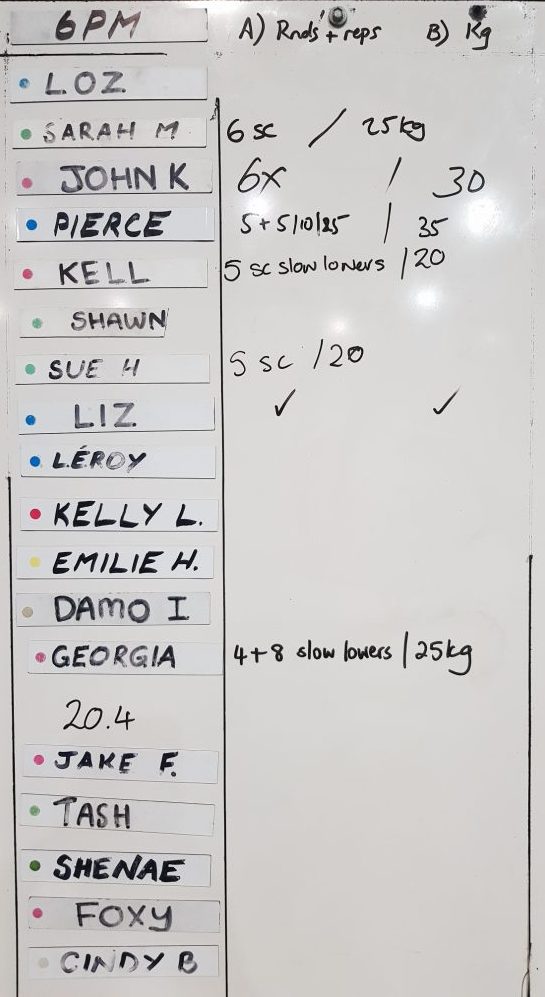 6PM A) Rnds + reps B) Kg
LOZ
SARAH M 6 sc / 25kg
JOHN K 6x / 30
PIERCE 5+5/10/25 | 35
KELL 5 sc slow lowers / 20
SHAWN
SUE H 5 sc / 20
LIZ ✓ ✓
LÉROY
KELLY L.
EMILIE H.
DAMO I
GEORGIA 4+8 slow lowers | 25kg
20.4
JAKE F.
TASH
SHENAE
FOXY
CINDY B